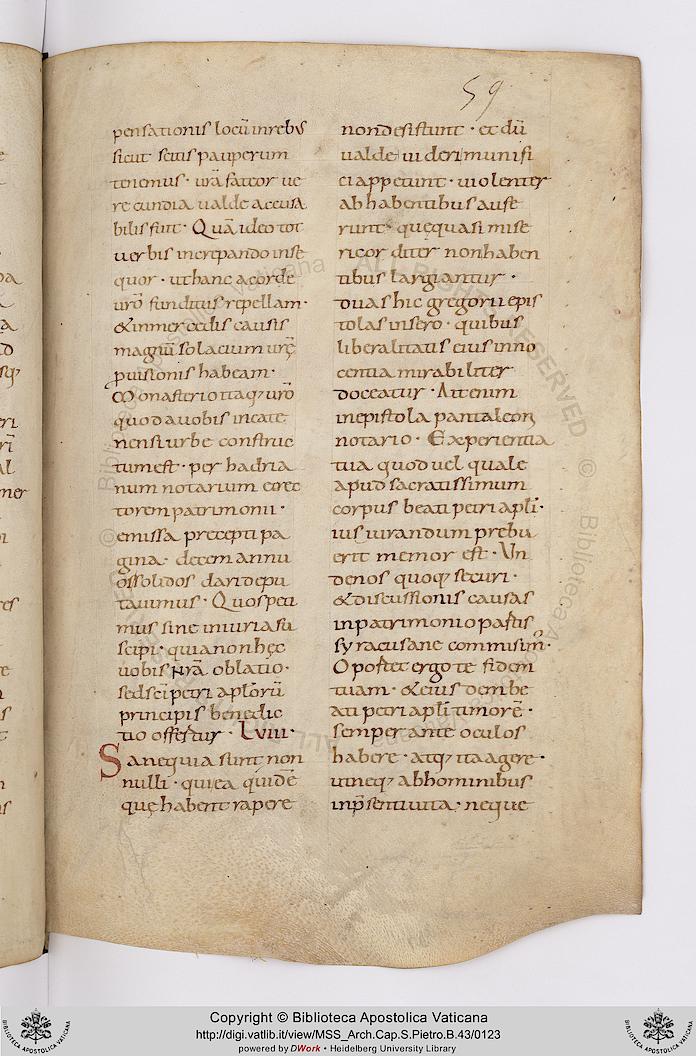 59
pensationis locū in rebus
sicut scitis pauperum
tenemus · urā fateor ue
recundia ualde accusa
bilis sunt · Quā ideo tot
uerbis increpando inse
quor · ut hanc a corde
uro funditus repellam ·
& in mercedis causis
magnū solacium urę
prouisionis habeam ·
Monasterio itaq; uro
quod a uobis in cate
nensi urbe construc
tum est · per hadria
num notarium & rec
torem patrimonii ·
emissa precepti pa
gina · decem annu
os solidos dari depu
tauimus · Quos peti
mus sine iniuria su
scipi · quia non hęc
uobis nrā oblatio ·
sed scī petri aplōrū
principis benedic
tio offertur · Lviii ·
Sane quia sunt non
nulli · qui ea quidē
quę habent rapere
non desistunt · et dū
ualde uideri munifi
ci appetunt · uiolenter
ab habentibus aufe
runt · quę quasi mise
ricorditer non haben
tibus largiantur ·
duas hic gregorii epis
tolas insero · quibus
liberalitatis eius inno
centia mirabiliter
doceatur · Ait enim
in epistola pantaleon
notario · Experientia
tua quod uel quale
apud sacratissimum
corpus beati petri apli ·
iusiurandum prebu
erit memor est · Un
de nos quoq; securi ·
& discussionis causas
in patrimonio partis
syracusane commisim̄ ·
Oportet ergo te fidem
tuam · & eiusdem be
ati petri apli timorē ·
semper ante oculos
habere · atq; ita agere ·
ut neq; ab hominibus
in p̄senti uita · neque
Copyright © Biblioteca Apostolica Vaticana
http://digi.vatlib.it/view/MSS_Arch.Cap.S.Pietro.B.43/0123
powered by DWork • Heidelberg University Library